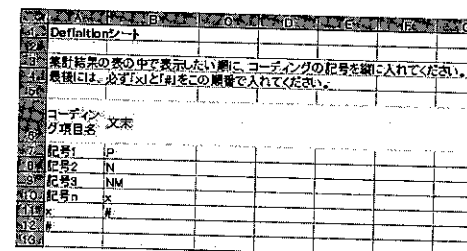 A B C D E F
1 Definitionシート
2
3 集計結果の表の中で表示したい順に、コーディングの記号を縦に入れてください。
4 最後には、必ず「x」と「#」をこの順番で入れてください。
5
6 コーディング項目名 文末
7 記号1 P
8 記号2 N
9 記号3 NM
10 記号n x
11 x #
12 #
13